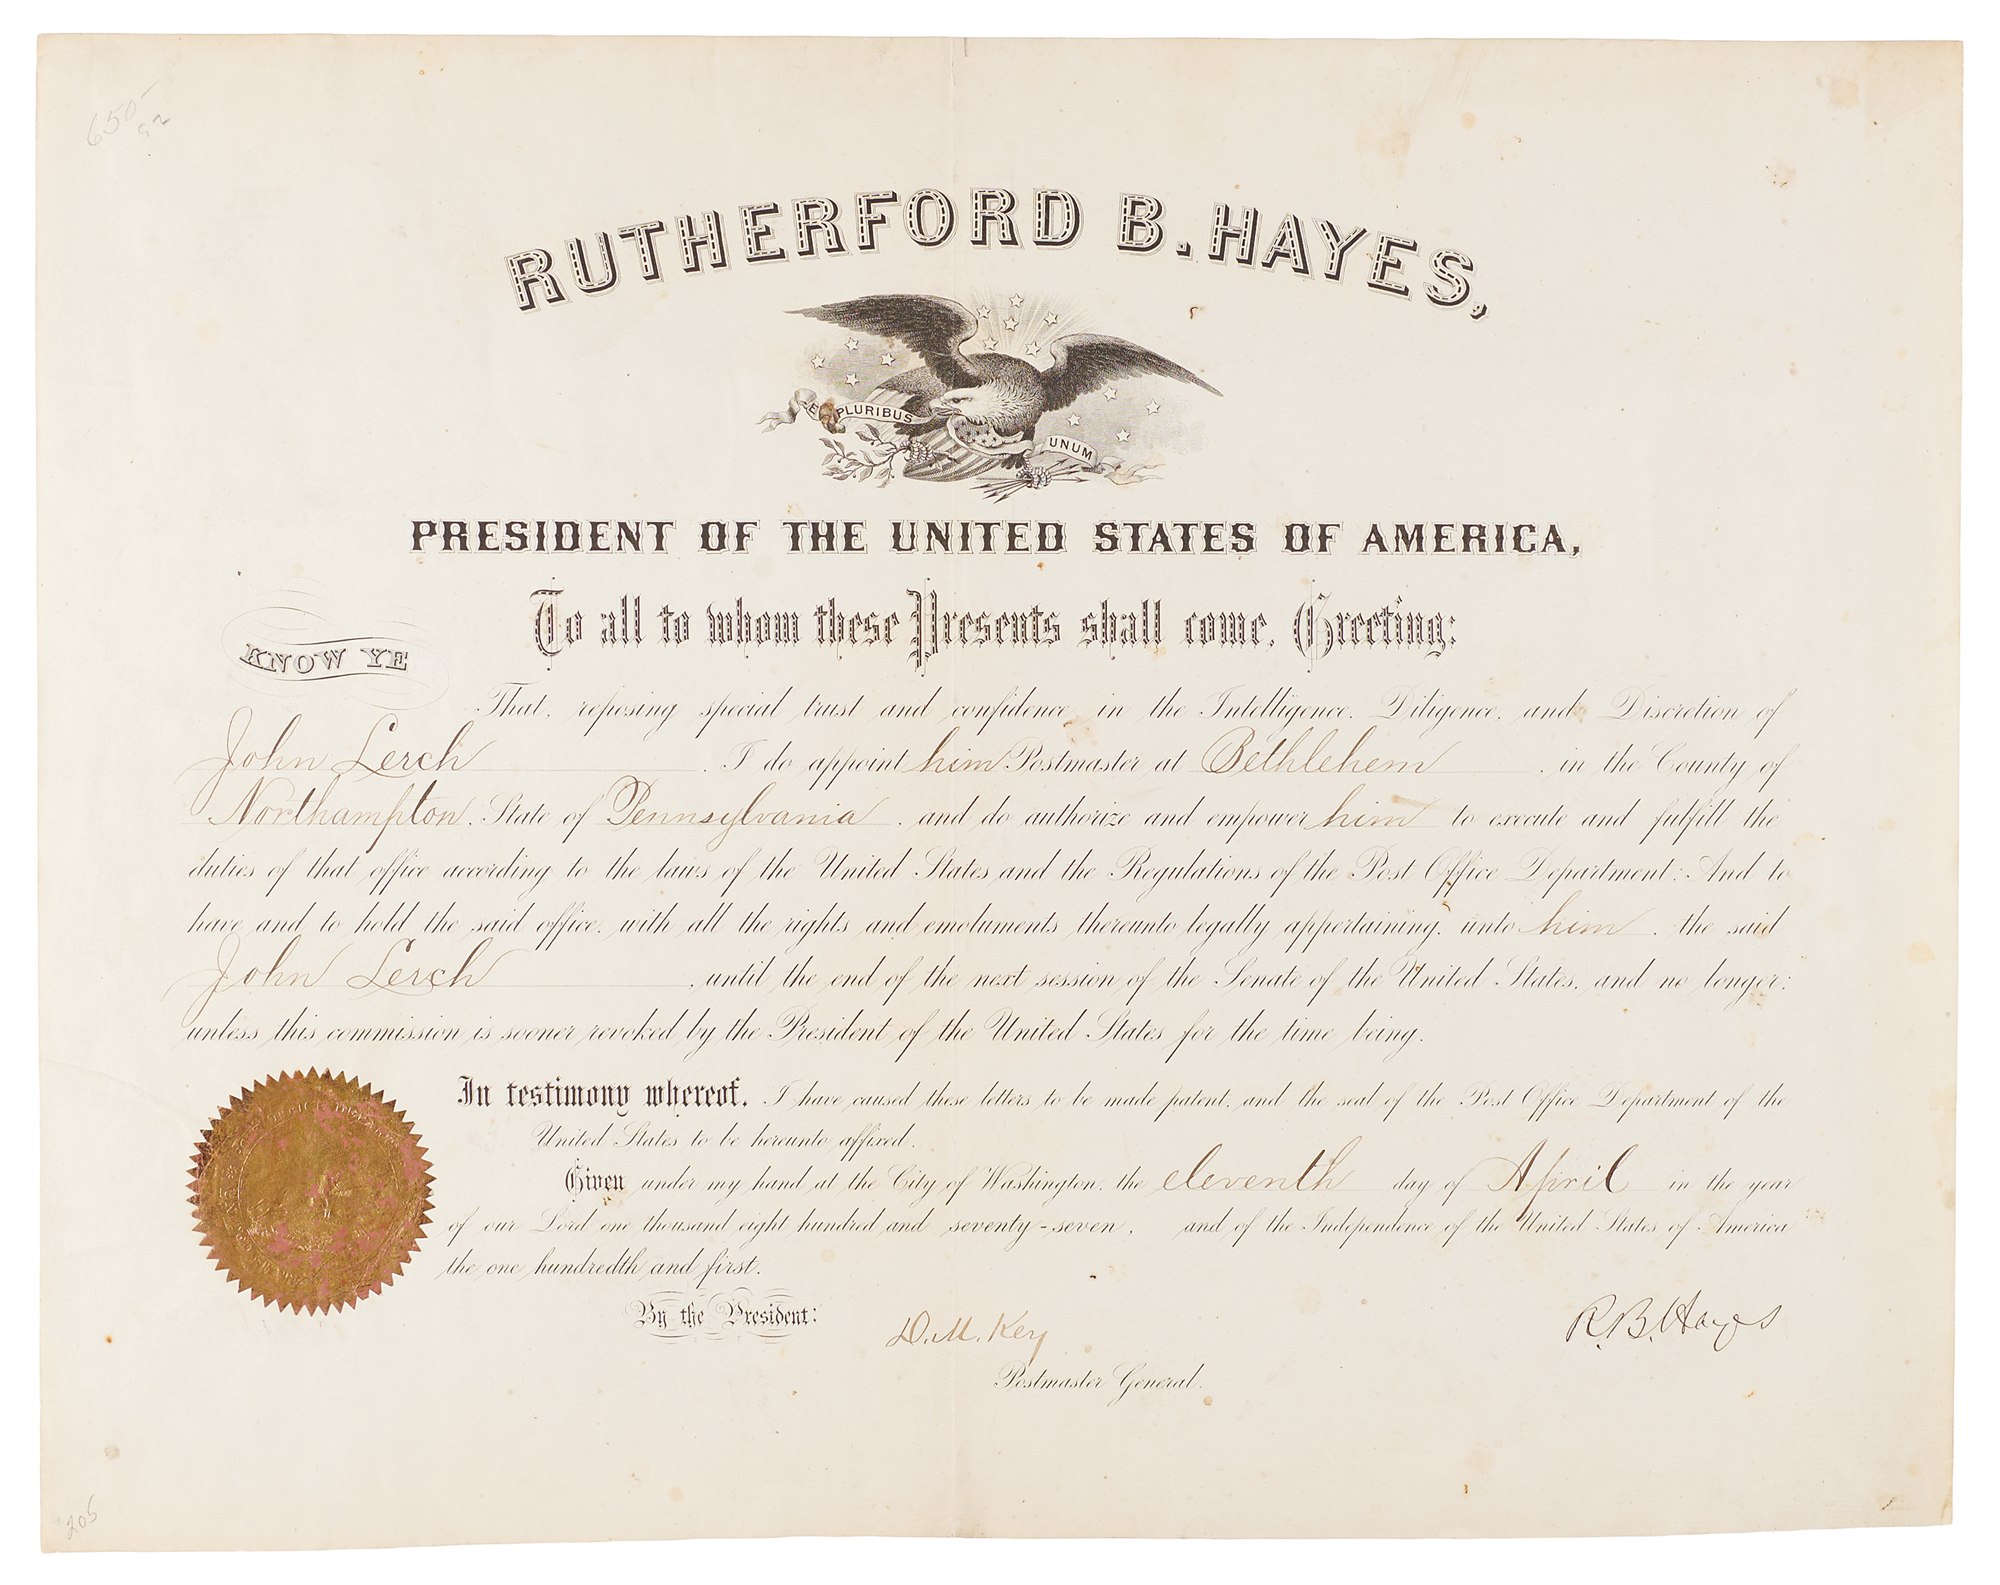 650-
92
RUTHERFORD B. HAYES,
E PLURIBUS UNUM
PRESIDENT OF THE UNITED STATES OF AMERICA,
To all to whom these Presents shall come, Greeting:
KNOW YE
That, reposing special trust and confidence in the Intelligence, Diligence, and Discretion of
John Lerch, I do appoint him Postmaster at Bethlehem, in the County of
Northampton, State of Pennsylvania, and do authorize and empower him to execute and fulfill the
duties of that office according to the laws of the United States and the Regulations of the Post Office Department: And to
have and to hold the said office, with all the rights and emoluments thereunto legally appertaining, unto him, the said
John Lerch, until the end of the next session of the Senate of the United States, and no longer;
unless this commission is sooner revoked by the President of the United States for the time being.
In testimony whereof, I have caused these letters to be made patent, and the seal of the Post Office Department of the
United States to be hereunto affixed.
Given under my hand at the City of Washington, the eleventh day of April in the year
of our Lord one thousand eight hundred and seventy-seven, and of the Independence of the United States of America
the one hundredth and first.
By the President:
R. B. Hayes
D. M. Key
Postmaster General.
205